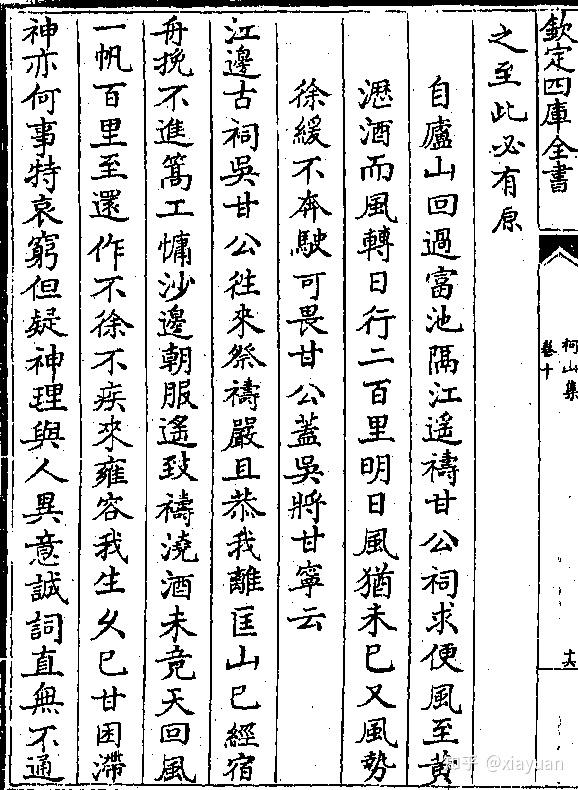 欽定四庫全書
柯山集
卷十
之至此必有原
自廬山回過富池隔江遥禱甘公祠求便風至黄
瀝酒而風轉日行二百里明日風猶未已又風勢
徐緩不奔駛可畏甘公蓋吳將甘寧云
江邊古祠吳甘公徃來祭禱嚴且恭我離匡山已經宿
舟挽不進篙工慵沙邊朝服遙致禱澆酒未竟天回風
一帆百里至還作不徐不疾來雍容我生久已甘困滯
神亦何事特哀窮但疑神理與人異意誠詞直無不通
知乎 @xiayuan